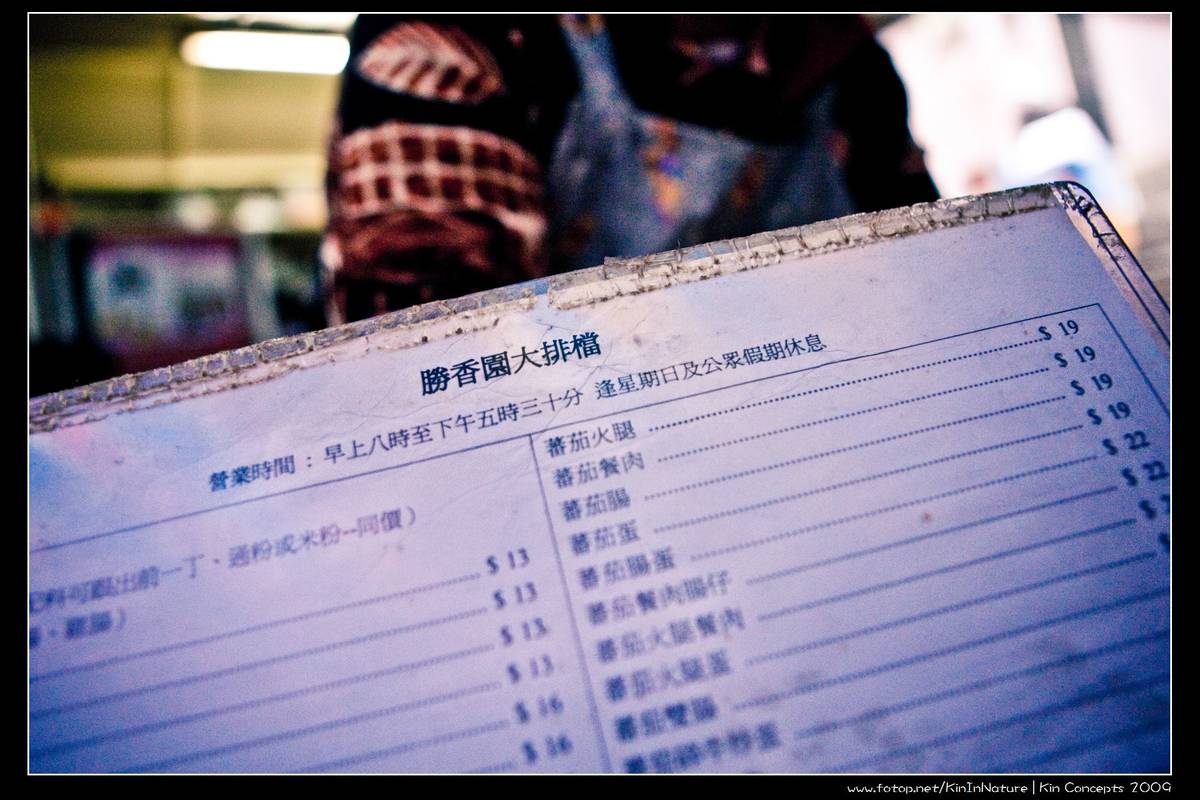 勝香園大排檔
營業時間：早上八時至下午五時三十分 逢星期日及公眾假期休息
可點出前一丁、通粉或米粉--同價）
腸）
$ 13
$ 13
$ 13
$ 13
$ 16
$ 16
蕃茄火腿 $ 19
蕃茄餐肉 $ 19
蕃茄腸 $ 19
蕃茄蛋 $ 19
蕃茄腸蛋 $ 22
蕃茄餐肉腸仔 $ 22
蕃茄火腿餐肉 $
蕃茄火腿蛋 $
蕃茄雙腸
www.fotop.net/KinInNature | Kin Concepts 2009